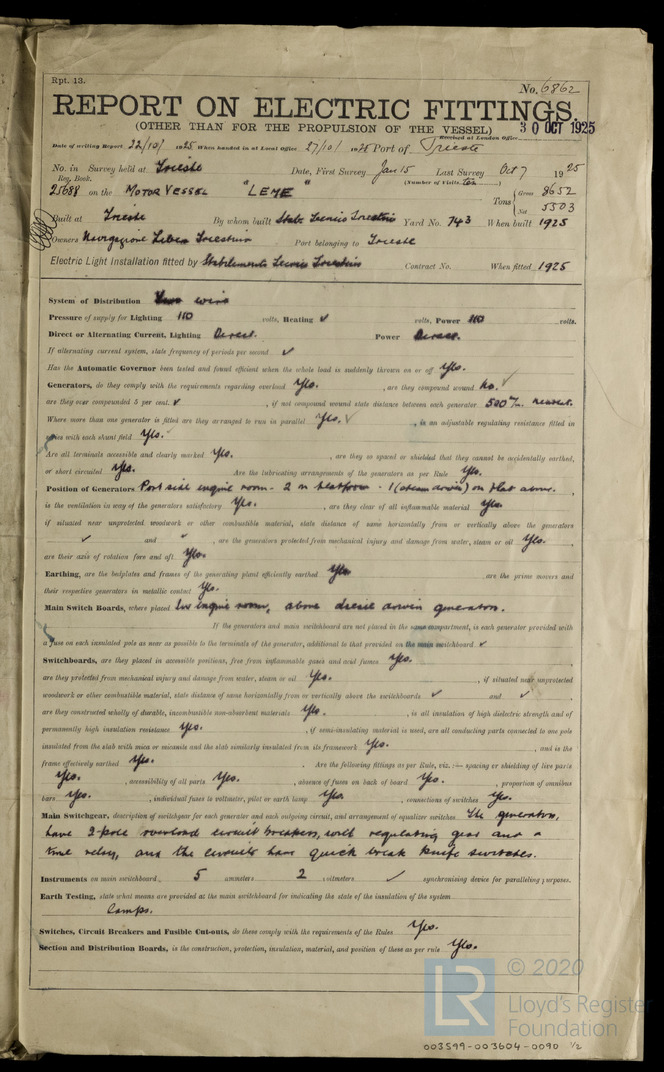 Rpt. 13.
No. 6862
REPORT ON ELECTRIC FITTINGS.
(OTHER THAN FOR THE PROPULSION OF THE VESSEL)
Received at London Office
30 OCT 1925
Date of writing Report 22/10/1925 When handed in at Local Office 27/10/1925 Port of Trieste
No. in Survey held at Trieste Date, First Survey Jan 15 Last Survey Oct 7 1925
Reg. Book. (Number of Visits ten)
25688 on the MOTOR VESSEL "LEME" Tons { Gross 8652
Net 5303
Built at Trieste By whom built Stab. Tecnico Triestino Yard No. 743 When built 1925
Owners Navigazione Libera Triestina Port belonging to Trieste
Electric Light Installation fitted by Stabilimento Tecnico Triestino Contract No. When fitted 1925
System of Distribution Two wire
Pressure of supply for Lighting 110 volts, Heating ✓ volts, Power 110 volts.
Direct or Alternating Current, Lighting Direct. Power Direct.
If alternating current system, state frequency of periods per second ✓
Has the Automatic Governor been tested and found efficient when the whole load is suddenly thrown on or off Yes.
Generators, do they comply with the requirements regarding overload Yes. , are they compound wound No. ✓
are they over compounded 5 per cent. ✓ , if not compound wound state distance between each generator 500 m/m. nearest.
Where more than one generator is fitted are they arranged to run in parallel Yes. ✓ , is an adjustable regulating resistance fitted in
series with each shunt field Yes. ✓
Are all terminals accessible and clearly marked Yes. , are they so spaced or shielded that they cannot be incidentally earthed,
or short circuited Yes. Are the lubricating arrangements of the generators as per Rule Yes.
Position of Generators Port side engine room - 2 on platform - 1 (steam driven) on flat above.
is the ventilation in way of the generators satisfactory Yes. , are they clear of all inflammable material Yes.
if situated near unprotected woodwork or other combustible material, state distance of same horizontally from or vertically above the generators
✓ and ✓ , are the generators protected from mechanical injury and damage from water, steam or oil Yes.
are their axis of rotation fore and aft Yes.
Earthing, are the bedplates and frames of the generating plant efficiently earthed Yes are the prime movers and
their respective generators in metallic contact Yes.
Main Switch Boards, where placed In engine room, above diesel driven generators.
If the generators and main switchboard are not placed in the same compartment, is each generator provided with
a fuse on each insulated pole as near as possible to the terminals of the generator, additional to that provided on the main switchboard ✓
Switchboards, are they placed in accessible positions, free from inflammable gases and acid fumes Yes.
are they protected from mechanical injury and damage from water, steam or oil Yes. , if situated near unprotected
woodwork or other combustible material, state distance of same horizontally from or vertically above the switchboards ✓ and ✓
are they constructed wholly of durable, incombustible non-absorbent materials Yes. , is all insulation of high dielectric strength and of
permanently high insulation resistance Yes. , if semi-insulating material is used, are all conducting parts connected to one pole
insulated from the slab with mica or micanite and the slab similarly insulated from its framework Yes. , and is the
frame effectively earthed Yes. Are the following fittings as per Rule, viz. :— spacing or shielding of live parts
Yes. , accessibility of all parts Yes. , absence of fuses on back of board Yes. , proportion of omnibus
bars Yes. , individual fuses to voltmeter, pilot or earth lamp Yes. , connections of switches Yes.
Main Switchgear, description of switchgear for each generator and each outgoing circuit, and arrangement of equalizer switches The generators,
have 2-pole overload circuit breakers, with regulating gear and a
time relay, and the circuits have quick break knife switches.
Instruments on main switchboard 5 ammeters 2 voltmeters ✓ synchronising device for paralleling purposes.
Earth Testing, state what means are provided at the main switchboard for indicating the state of the insulation of the system
Lamps.
Switches, Circuit Breakers and Fusible Cut-outs, do these comply with the requirements of the Rules Yes.
Section and Distribution Boards, is the construction, protection, insulation, material, and position of these as per rule Yes.
LR © 2020
Lloyd's Register
Foundation
003599-003604-0090 1/2